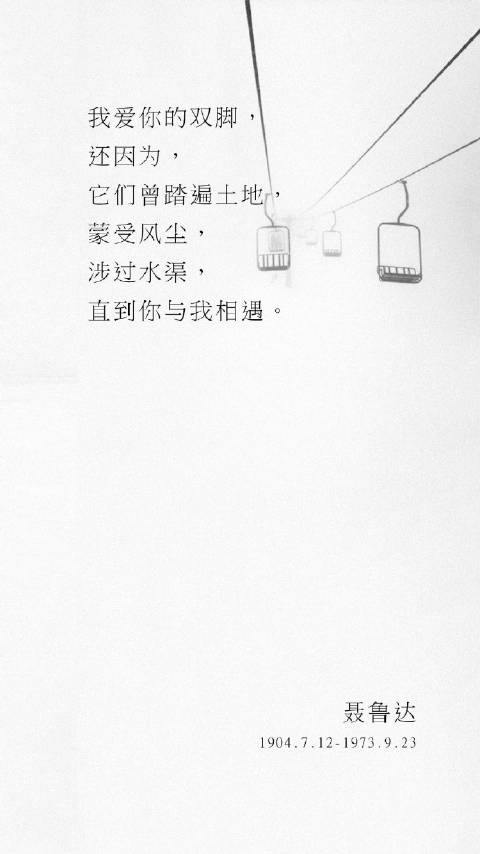 我爱你的双脚，
还因为，
它们曾踏遍土地，
蒙受风尘，
涉过水渠，
直到你与我相遇。
聂鲁达
1904.7.12-1973.9.23